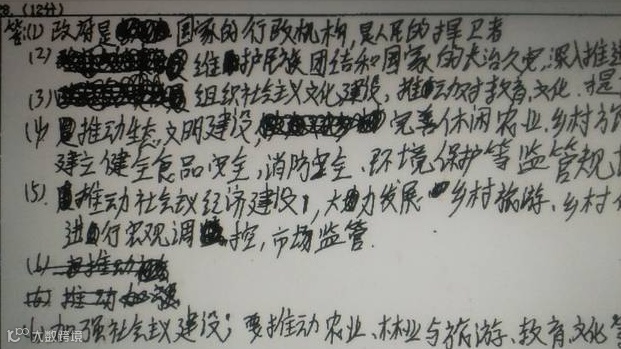 28. (12分)
答:(1) 政府是 国家的行政机构,是人民的捍卫者
(2) 维护民族团结和国家的长治久安,深入推进
(3) 组织社会主义文化建设,推动对教育、文化、
(4) 推动生态文明建设, 完善休闲农业、乡村旅
建立健全食品安全、消防安全、环境保护等监管规
(5). 推动社会主义经济建设,大力发展 乡村旅游、乡村
进行宏观调控,市场监管.
(6) 推动
推动
加强社会主义建设;要推动农业、林业与旅游、教育、文化
大数跨境